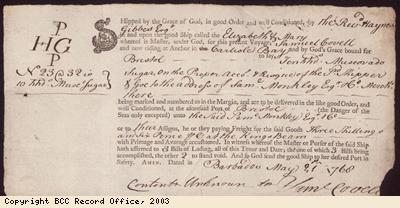 P
HG
P
Hipped by the Grace of God, in good Order and well Conditioned, by The Revd Haynes
Gibbes Esqr
in and upon the good Ship called the Elizabeth & Mary
whereof is Master, under God, for this present Voyage, Samuel Covell
and now riding at Anchor in the Carlisle Bay and by God's grace bound for
Bristol to say Ten Hhds Muscovado
No 23 @ 32 is
10 Hhds Musc Sugar
Sugar on the Proper Acct & Risque of the Shipper
& Goes to the address of Saml Munckley Esqr & Co
being marked and numbered as in the Margin, and are to be delivered in the like good Order, and
well Conditioned, at the aforesaid Port of Bristol (the Danger of the
Seas only excepted) unto the said Saml Munckley Esqr & Co
or to their Assigns, he or they paying Freight for the said Goods Three Shillings
and Six Pence at the Kings Beam
with Primage and Avarage accustomed. In witness whereof the Master or Purser of the said Ship
hath affirmed to 3 Bills of Lading, all of this Tenor and Date; the one of which 3 Bills being
accomplished, the other 2 to stand void. And so God send the good Ship to her desired Port in
Safety. AMEN. Dated in Barbados May 21st 1760
Contents Unknown to Saml Covell
Copyright BCC Record Office, 2003